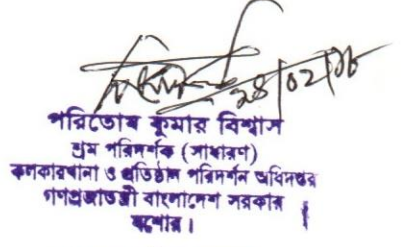 ২৪/০২/১৮
পরিতোষ কুমার বিশ্বাস
শ্রম পরিদর্শক (সাধারণ)
কলকারখানা ও প্রতিষ্ঠান পরিদর্শন অধিদপ্তর
গণপ্রজাতন্ত্রী বাংলাদেশ সরকার
যশোর।